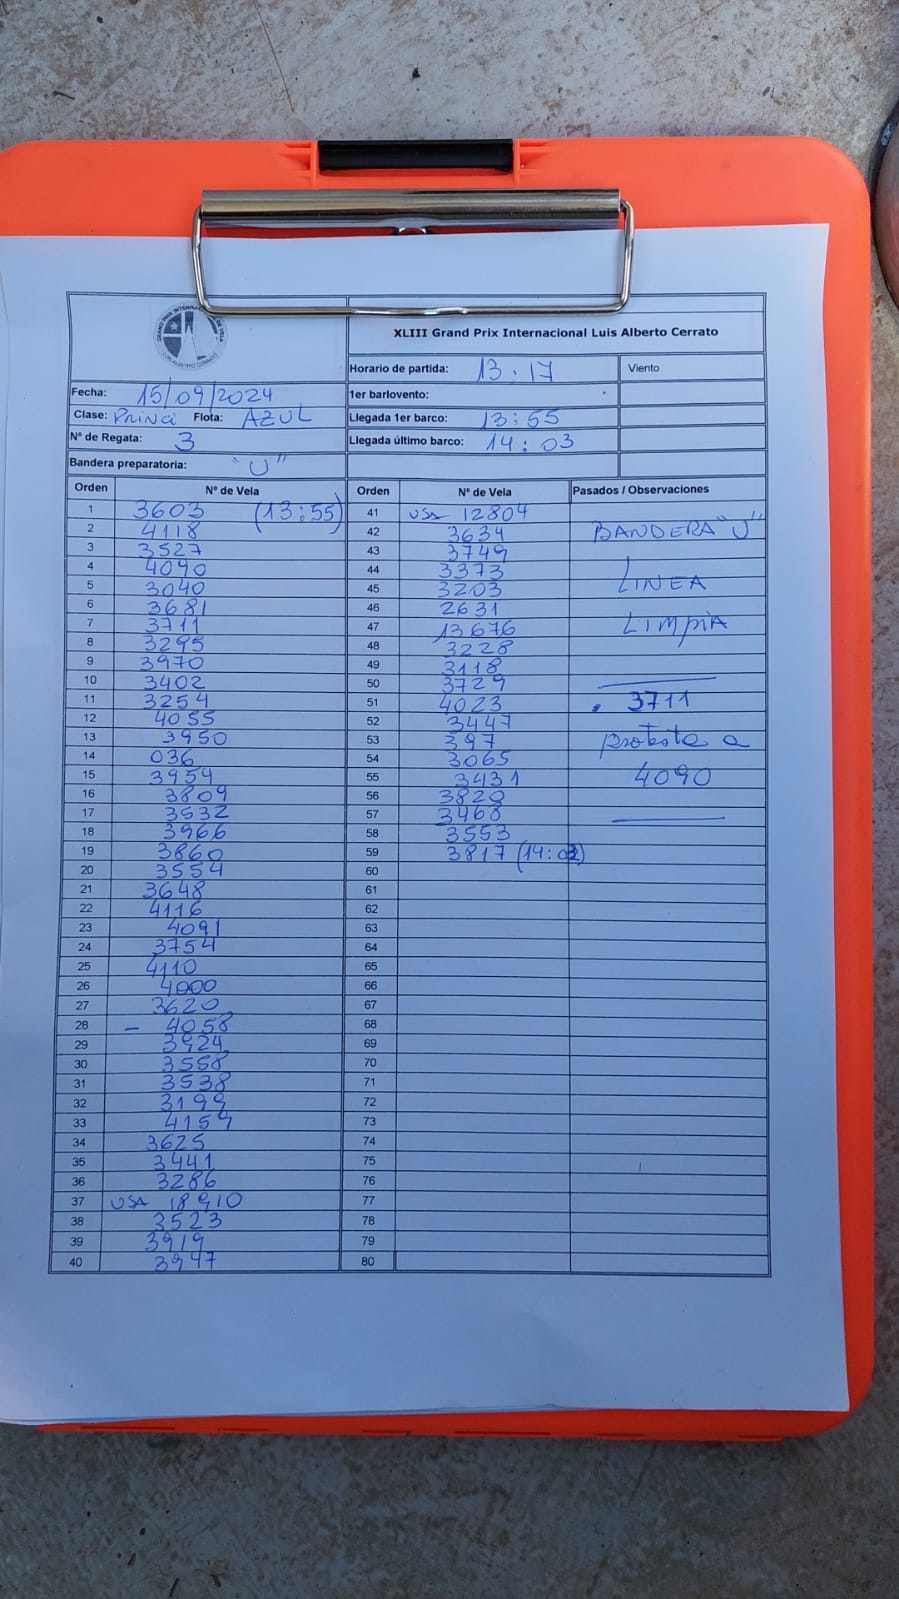 XLIII Grand Prix Internacional Luis Alberto Cerrato
Horario de partida: 13:17 Viento
Fecha: 15/09/2024 1er barlovento:
Clase: PRINCi Flota: AZUL Llegada 1er barco: 13:55
Nº de Regata: 3 Llegada último barco: 14:03
Bandera preparatoria: "U"
Orden Nº de Vela Orden Nº de Vela Pasados / Observaciones
1 3603 (13:55) 41 USA 12804
2 4118 42 3634 BANDERA "U"
3 3527 43 3749
4 4090 44 3373
5 3040 45 3203 LINEA
6 3681 46 2631
7 3711 47 13676 LIMPIA
8 3295 48 3228
9 3970 49 3118
10 3402 50 3729
11 3254 51 4023 . 3711
12 4055 52 3447
13 3950 53 397 protesta a
14 036 54 3065
15 3954 55 3431 4090
16 3809 56 3820
17 3532 57 3468
18 3966 58 3553
19 3860 59 3817 (14:03)
20 3554 60
21 3648 61
22 4116 62
23 4091 63
24 3754 64
25 4110 65
26 4000 66
27 3620 67
28 - 4058 68
29 3924 69
30 3558 70
31 3538 71
32 3199 72
33 4159 73
34 3625 74
35 3441 75
36 3286 76
37 USA 18910 77
38 3523 78
39 3919 79
40 3947 80